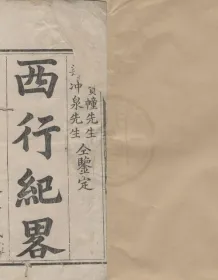 貟幢先生
冲泉先生
仝鑒定
西行紀畧